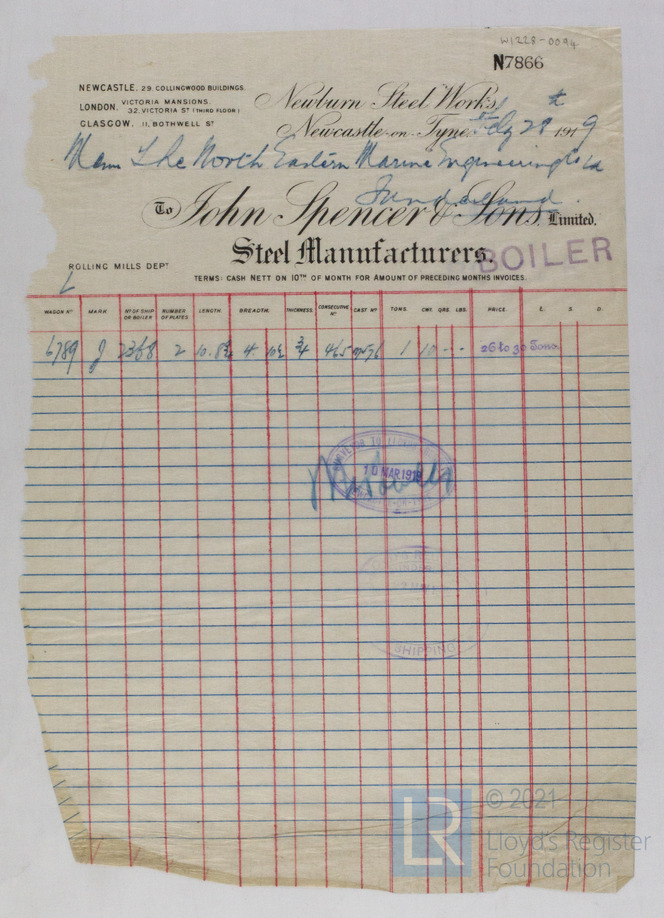 W1228-0094
N7866
NEWCASTLE. 29. COLLINGWOOD BUILDINGS.
LONDON. VICTORIA MANSIONS. 32, VICTORIA ST (THIRD FLOOR)
GLASGOW. 11, BOTHWELL ST
Newburn Steel Works,
Newcastle-on-Tyne, 28th 1919
The North Eastern Marine Engineering Co Ld
Sunderland.
To John Spencer & Sons, Limited.
Steel Manufacturers.
BOILER
ROLLING MILLS DEPT
TERMS: CASH NETT ON 10TH OF MONTH FOR AMOUNT OF PRECEDING MONTHS INVOICES.
WAGON NO MARK NO OF SHIP OR BOILER NUMBER OF PLATES LENGTH. BREADTH. THICKNESS. CONSECUTIVE NO CAST NO TONS. CWT. QRS. LBS. PRICE. £. S. D.
6789 J 2368 2 10.8¾ 4 10½ ¾ 465 1 10 - - 26 to 30 Tons.
SURVEYOR TO LLOYD'S
10 MAR 1919
SHIPPING
LR © 2021
Lloyd's Register
Foundation